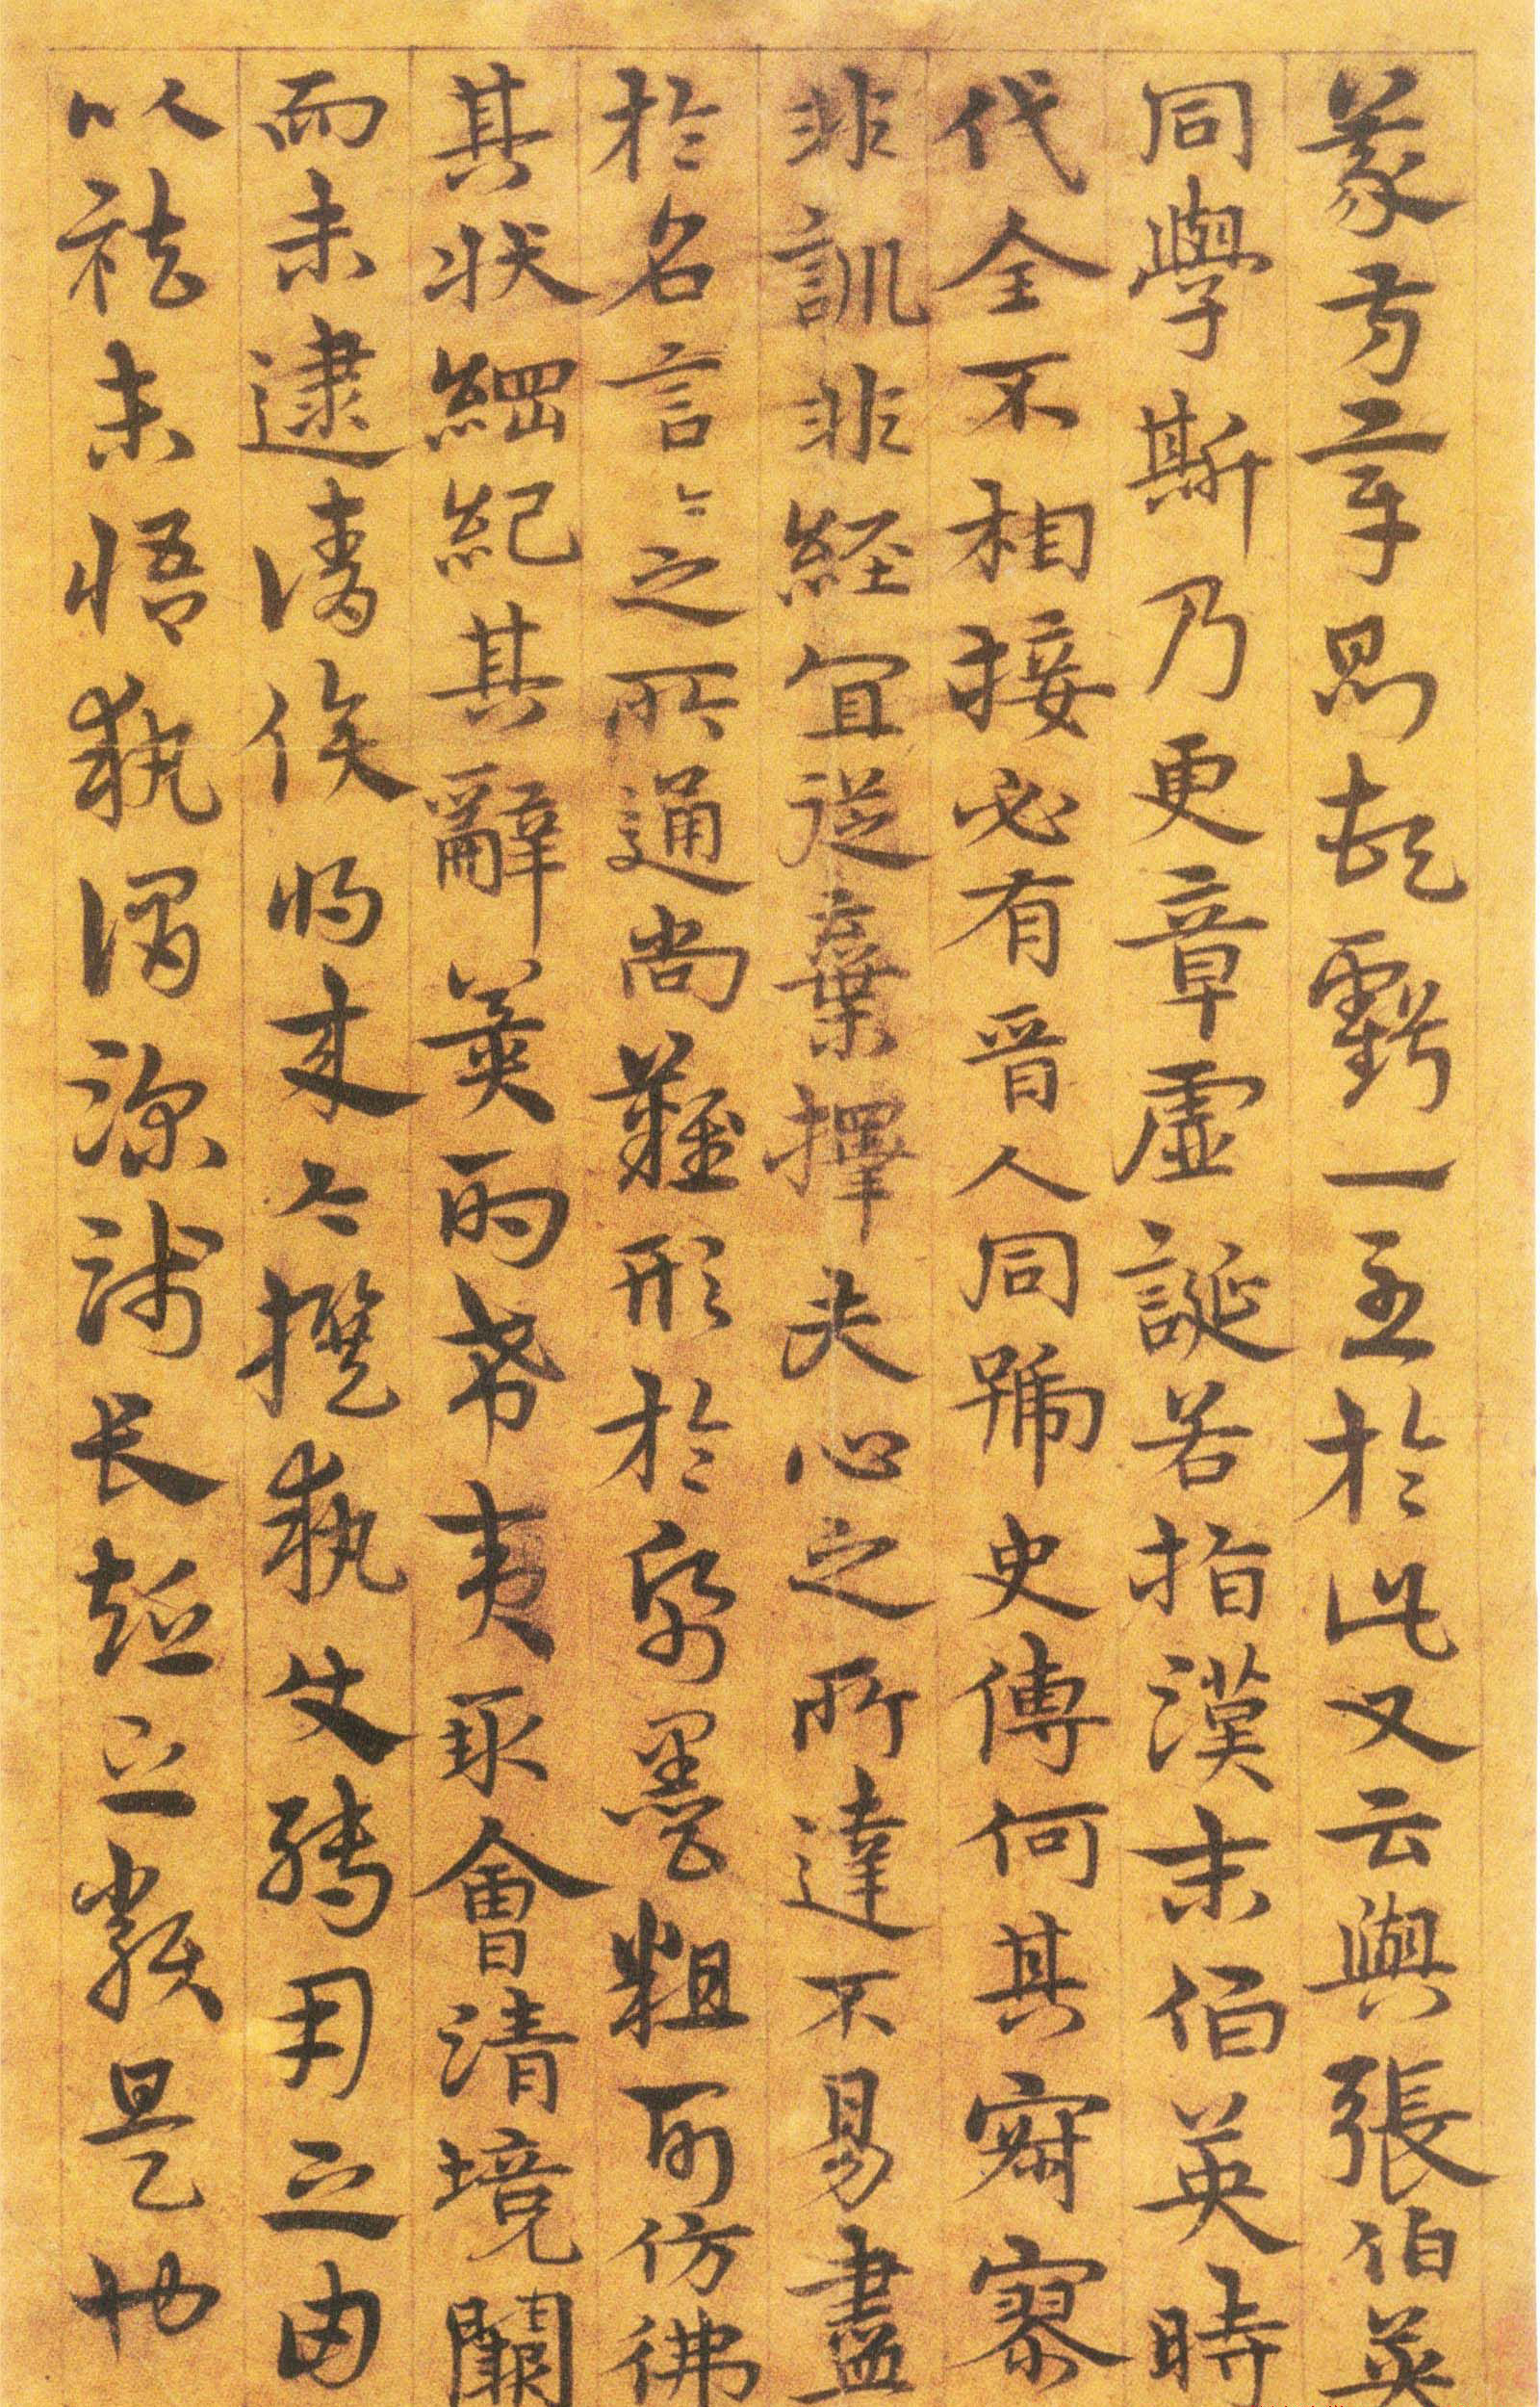 義方章則頓虧一至於此又云與張伯英
同學斯乃更章虛誕若指漢末伯英時
代全不相接必有晉人同號史傳何其寂寥
非訓非經宜從棄擇夫心之所達不易盡
於名言〻之所通尚難形於紙墨粗可仿佛
其狀綱紀其辭冀酌希夷取會清境闕
而未逮請俟將來今撰執使轉用之由
以祛未悟執謂深淺長短之類是也